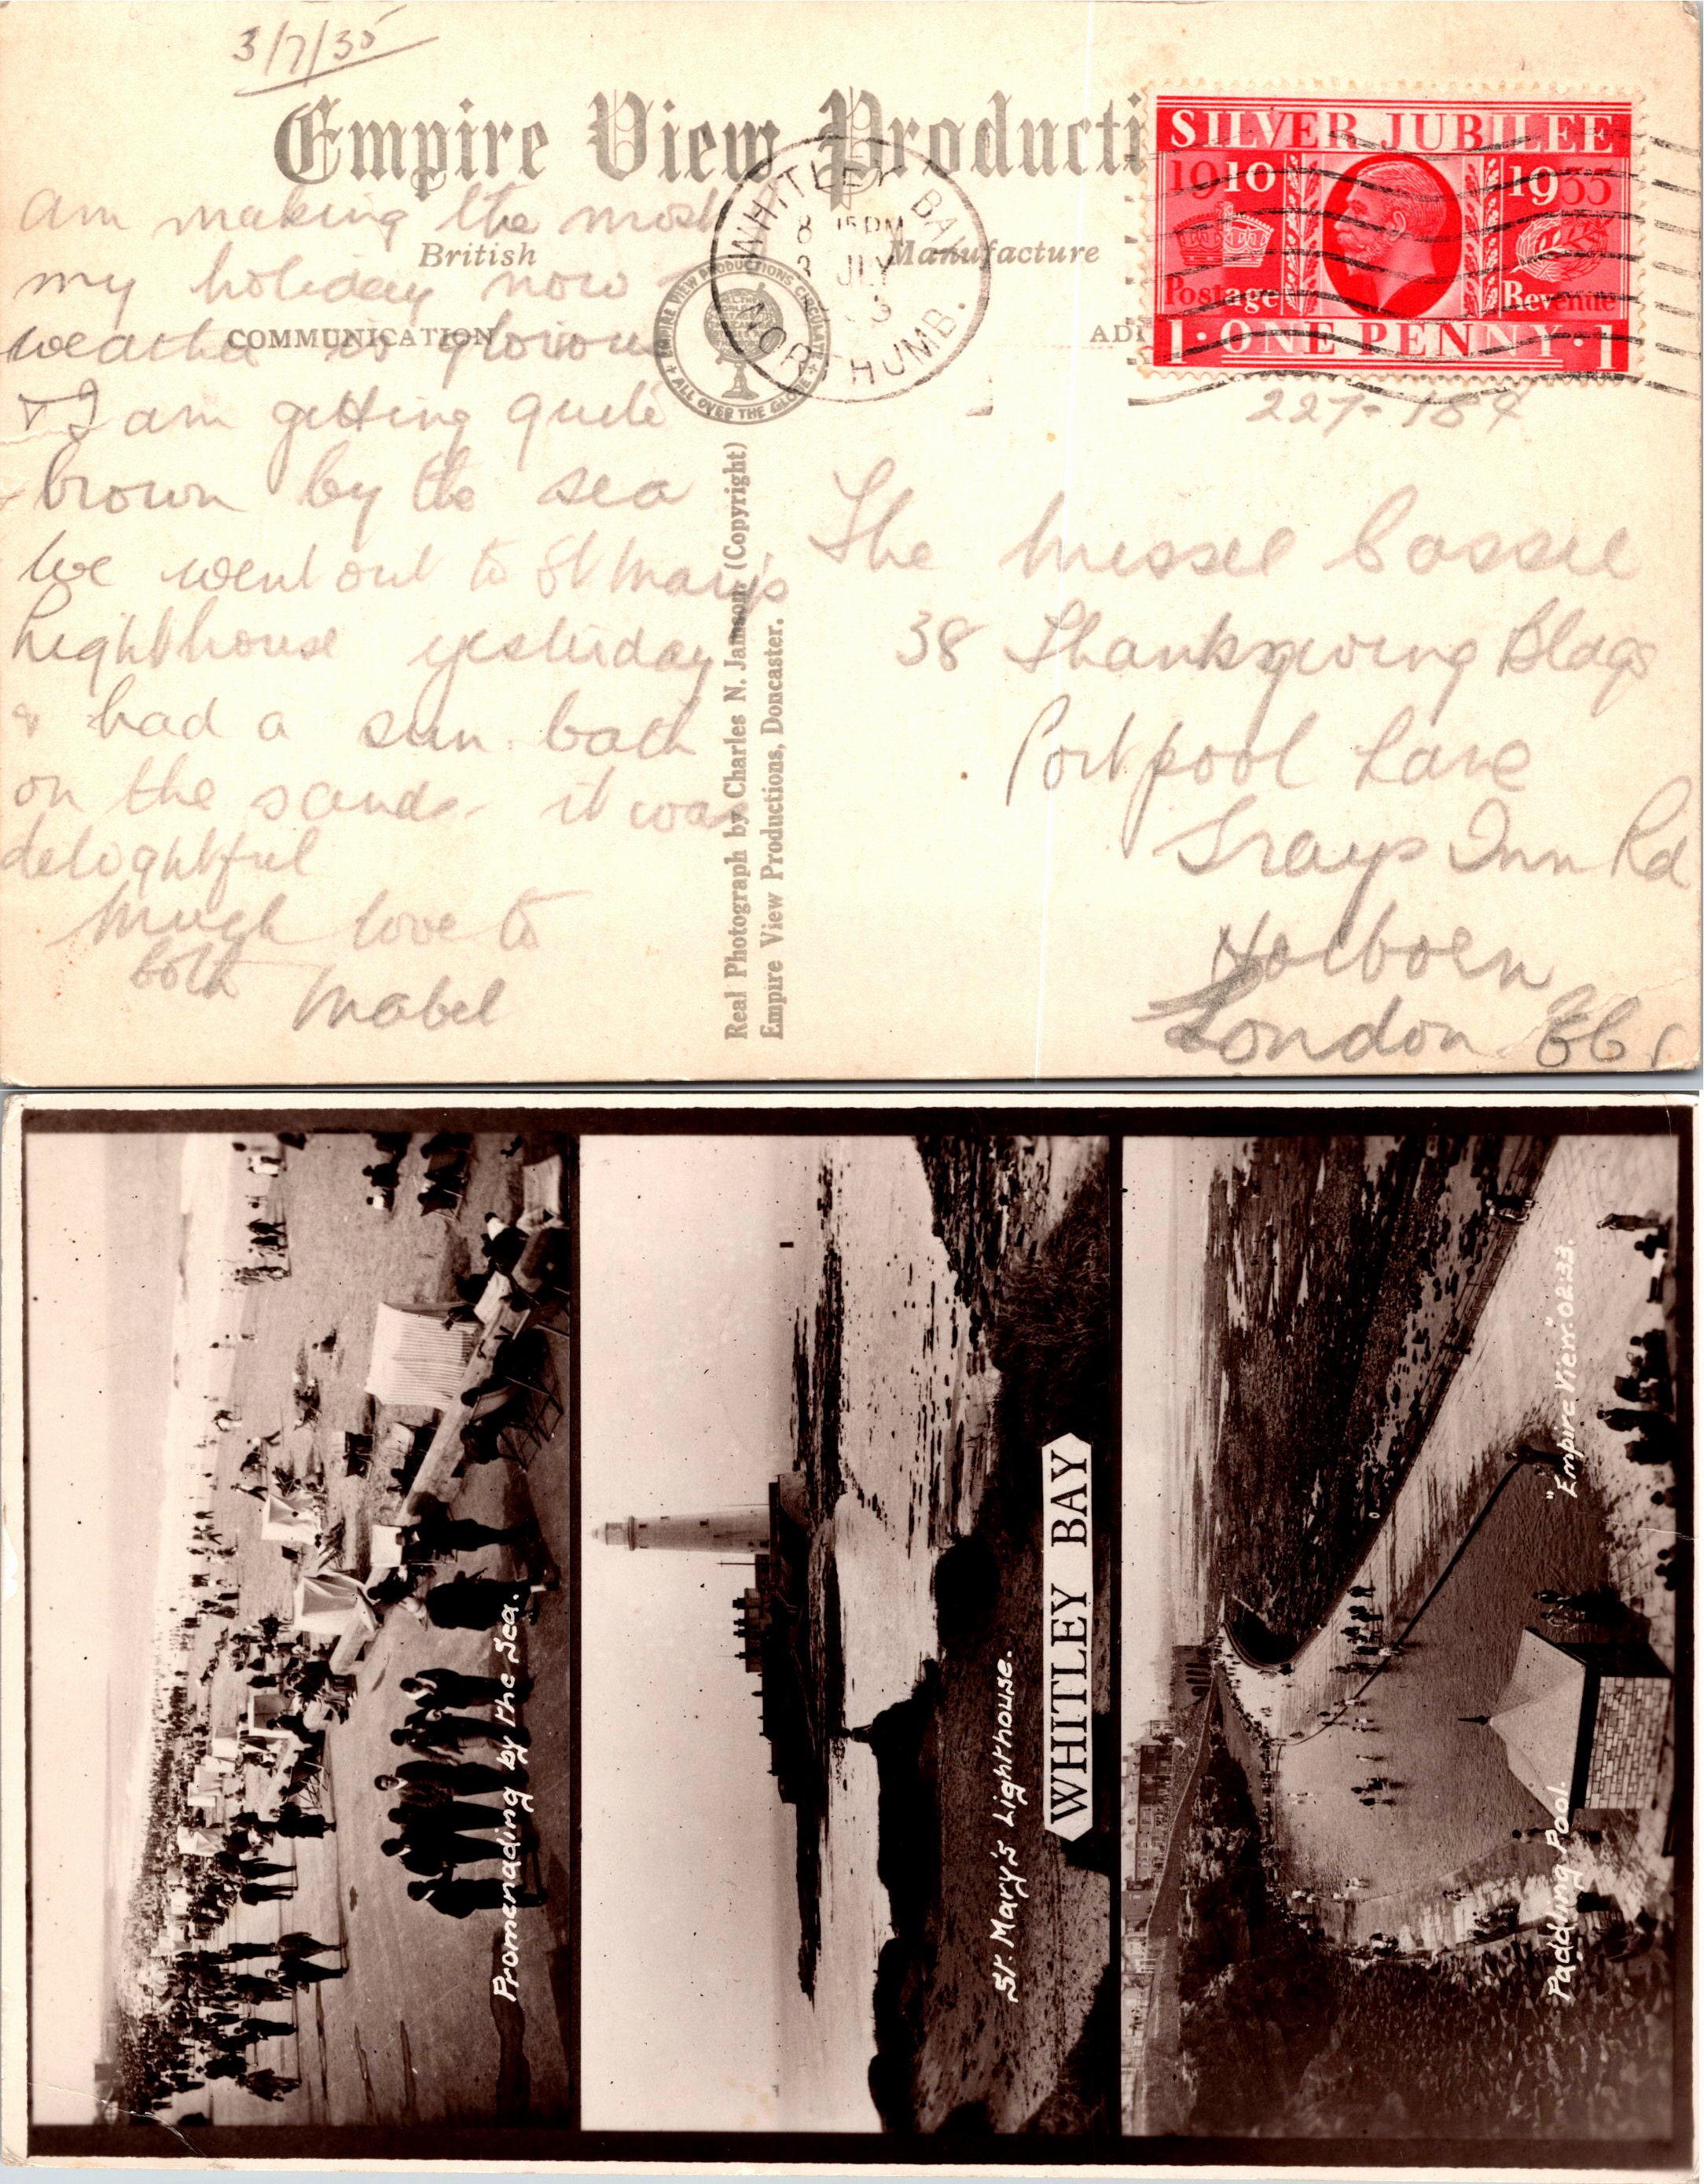 3/7/35
Empire View Producti
British Manufacture
COMMUNICATION
AD
SILVER JUBILEE
1910 1935
Postage Revenue
1 · ONE PENNY · 1
WHITLEY BAY
8 15 PM
3 JLY
NORTHUMB.
EMPIRE VIEW PRODUCTIONS CIRCULATE
ALL OVER THE GLOBE
am making the most
my holiday now
weather is glorious
& I am getting quite
brown by the sea
We went out to St Mary's
Lighthouse yesterday
& had a sun bath
on the sands. it was
delightful
Much love to
both Mabel
Real Photograph by Charles N. Jamson, (Copyright)
Empire View Productions, Doncaster.
227-184
The Misses
38 Thanksgiving Bldgs
Portpool Lane
Grays Inn Rd
Holborn
London
Promenading by the Sea.
St Mary's Lighthouse.
WHITLEY BAY
Paddling Pool.
"Empire View." 0233.